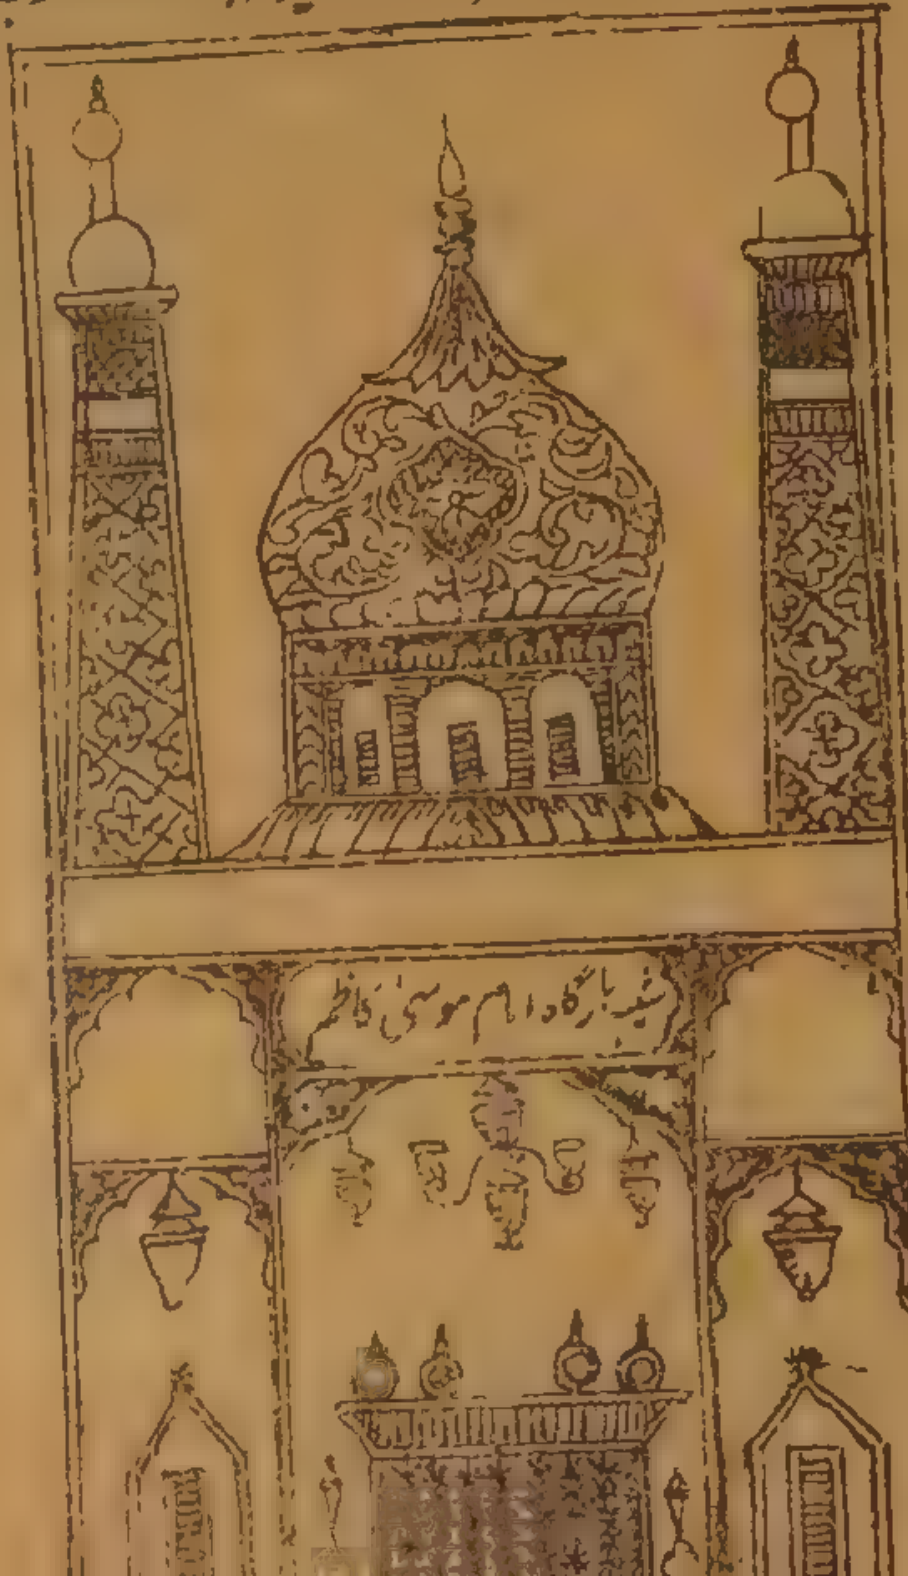 شبیه بارگاه امام موسی کاظم